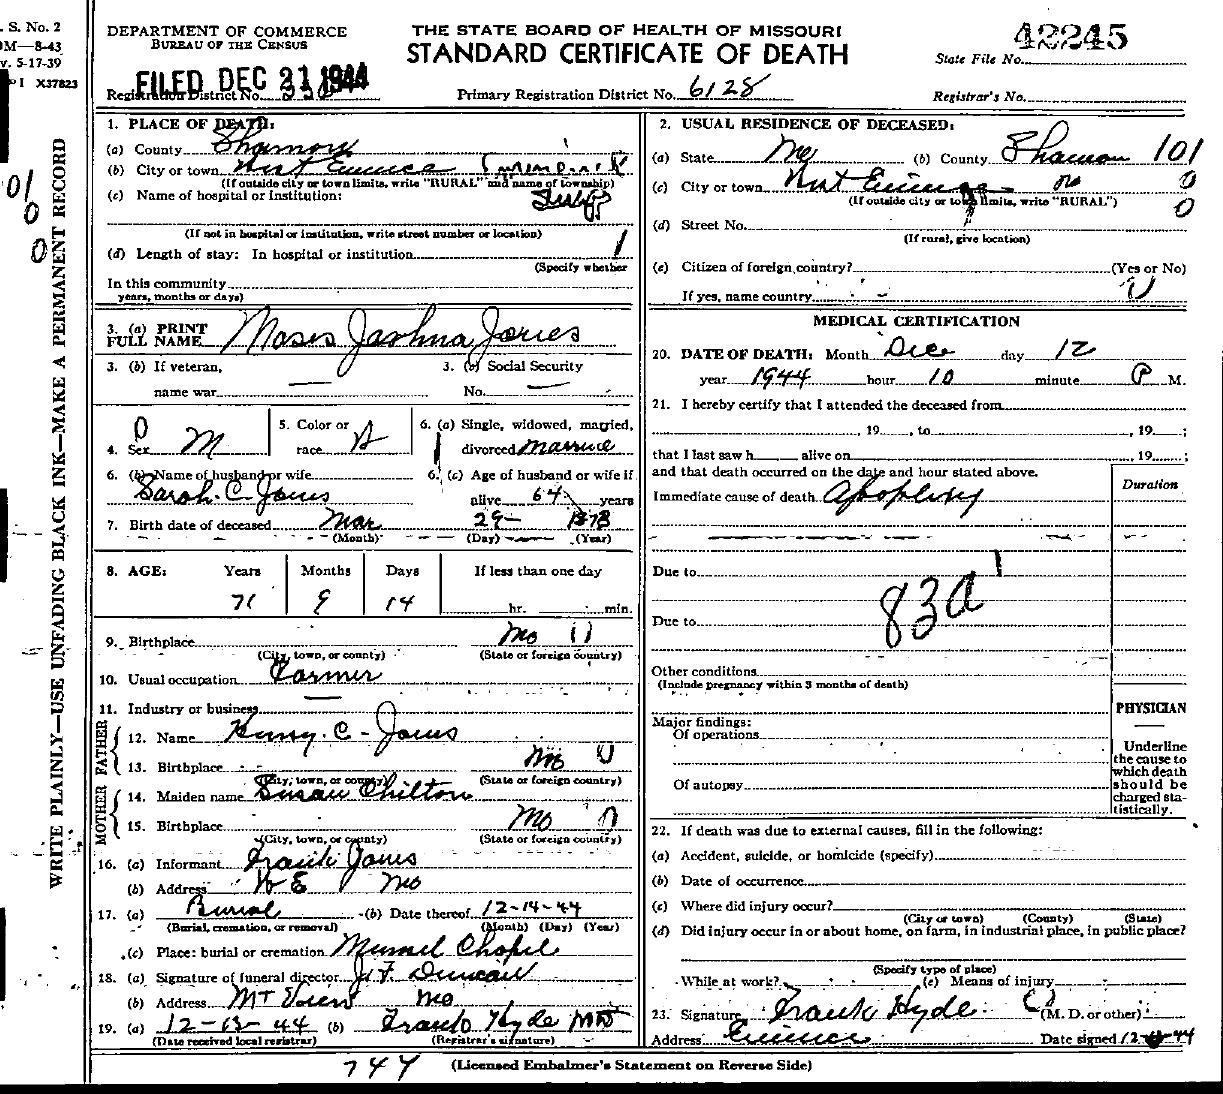 . S. No. 2
0M—8-43
v. 5-17-39
P I X37823
DEPARTMENT OF COMMERCE
BUREAU OF THE CENSUS
THE STATE BOARD OF HEALTH OF MISSOURI
STANDARD CERTIFICATE OF DEATH
42245
State File No.
FILED DEC 21 1944
Registration District No.
Primary Registration District No. 6128
Registrar's No.
WRITE PLAINLY—USE UNFADING BLACK INK—MAKE A PERMANENT RECORD
01
0
0
1. PLACE OF DEATH:
(a) County Shannon
(b) City or town West Eminence
(If outside city or town limits, write "RURAL" and name of township)
(c) Name of hospital or institution:
(If not in hospital or institution, write street number or location)
(d) Length of stay: In hospital or institution
(Specify whether
In this community
years, months or days)
3. (a) PRINT FULL NAME Moses Joshua Jones
3. (b) If veteran, name war — 3. (c) Social Security No. —
4. Sex M 5. Color or race W 6. (a) Single, widowed, married, divorced Married
6. (b) Name of husband or wife Sarah C Jones 6. (c) Age of husband or wife if alive 64 years
7. Birth date of deceased Mar 29 1873
(Month) (Day) (Year)
8. AGE: Years Months Days If less than one day
71 9 14 hr. min.
9. Birthplace Mo
(City, town, or county) (State or foreign country)
10. Usual occupation Farmer
11. Industry or business
FATHER
12. Name Henry. C - Jones
13. Birthplace Mo
(City, town, or county) (State or foreign country)
MOTHER
14. Maiden name Susan Chilton
15. Birthplace Mo
(City, town, or county) (State or foreign country)
16. (a) Informant Frank Jones
(b) Address W E Mo
17. (a) Burial (b) Date thereof 12-14-44
(Burial, cremation, or removal) (Month) (Day) (Year)
(c) Place: burial or cremation Chapel
18. (a) Signature of funeral director J. F. Duncan
(b) Address Mt View Mo
19. (a) 12-13-44 (b) Frank Hyde MD
(Date received local registrar) (Registrar's signature)
2. USUAL RESIDENCE OF DECEASED:
(a) State Mo (b) County Shannon 101
(c) City or town West Eminence 0
(If outside city or town limits, write "RURAL") 0
(d) Street No.
(If rural, give location)
(e) Citizen of foreign country? (Yes or No)
If yes, name country
MEDICAL CERTIFICATION
20. DATE OF DEATH: Month Dec day 12
year 1944 hour 10 minute P M.
21. I hereby certify that I attended the deceased from
, 19 , to , 19 ;
that I last saw h alive on , 19 ;
and that death occurred on the date and hour stated above.
Duration
Immediate cause of death Apoplexy
Due to
83a
Due to
Other conditions
(Include pregnancy within 3 months of death)
Major findings:
Of operations
Of autopsy
PHYSICIAN
Underline
the cause to
which death
should be
charged sta-
tistically.
22. If death was due to external causes, fill in the following:
(a) Accident, suicide, or homicide (specify)
(b) Date of occurrence
(c) Where did injury occur?
(City or town) (County) (State)
(d) Did injury occur in or about home, on farm, in industrial place, in public place?
(Specify type of place)
While at work? (e) Means of injury
23. Signature Frank Hyde (M. D. or other)
Address Eminence Date signed
747
(Licensed Embalmer's Statement on Reverse Side)